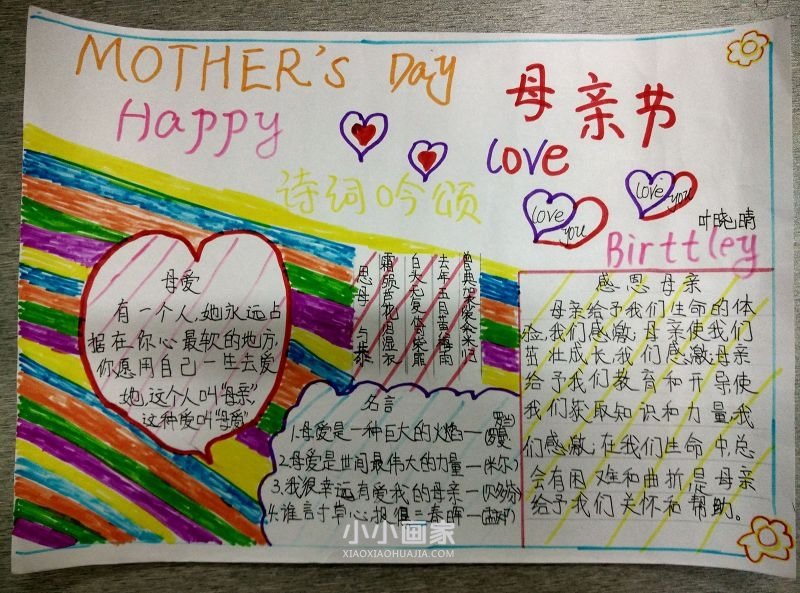 MOTHER's Day
母亲节
Happy
love
诗词吟颂
love you
love you
叶晓晴
Birttley
母爱
有一个人,她永远占
据在你心最软的地方,
你愿用自己一生去爱
她,这个人叫“母亲”
这种爱叫“母爱”
思母 与恭
霜殒芦花泪湿衣
白头无复倚柴扉
去年五月黄梅雨
曾典袈裟籴米归
名言
1.母爱是一种巨大的火焰—(罗曼罗兰)
2.母爱是世间最伟大的力量—(米尔)
3.我很幸运有爱我的母亲—(贝多芬)
4.谁言寸草心,报得三春晖—(孟郊)
感恩母亲
母亲给予我们生命的体
验,我们感激;母亲使我们
茁壮成长,我们感激;母亲
给予我们教育和开导使
我们获取知识和力量,我
们感激;在我们生命中,总
会有困难和曲折,是母亲
给予我们关怀和帮助。
小小画家
XIAOXIAOHUAJIA.COM